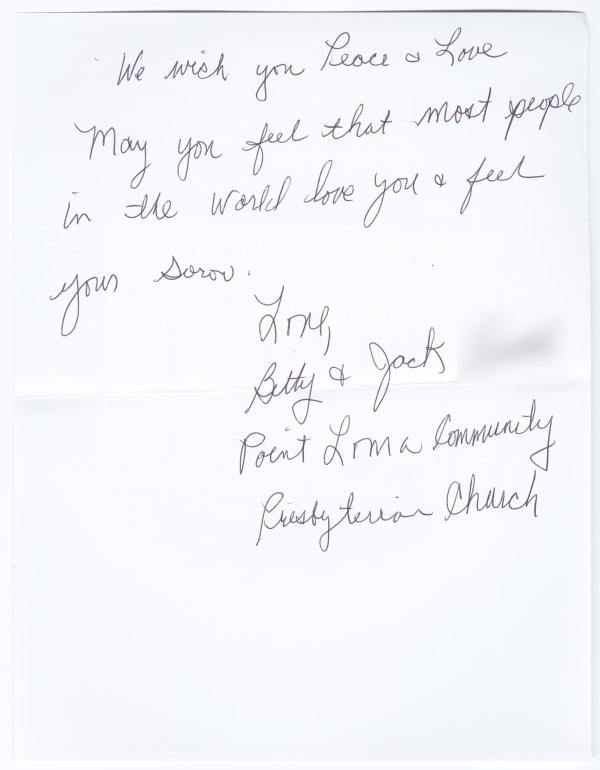 We wish you Peace & Love
May you feel that most people
in the world love you & feel
your sorow.
Love,
Betty & Jack
Point Loma Community
Presbyterian Church